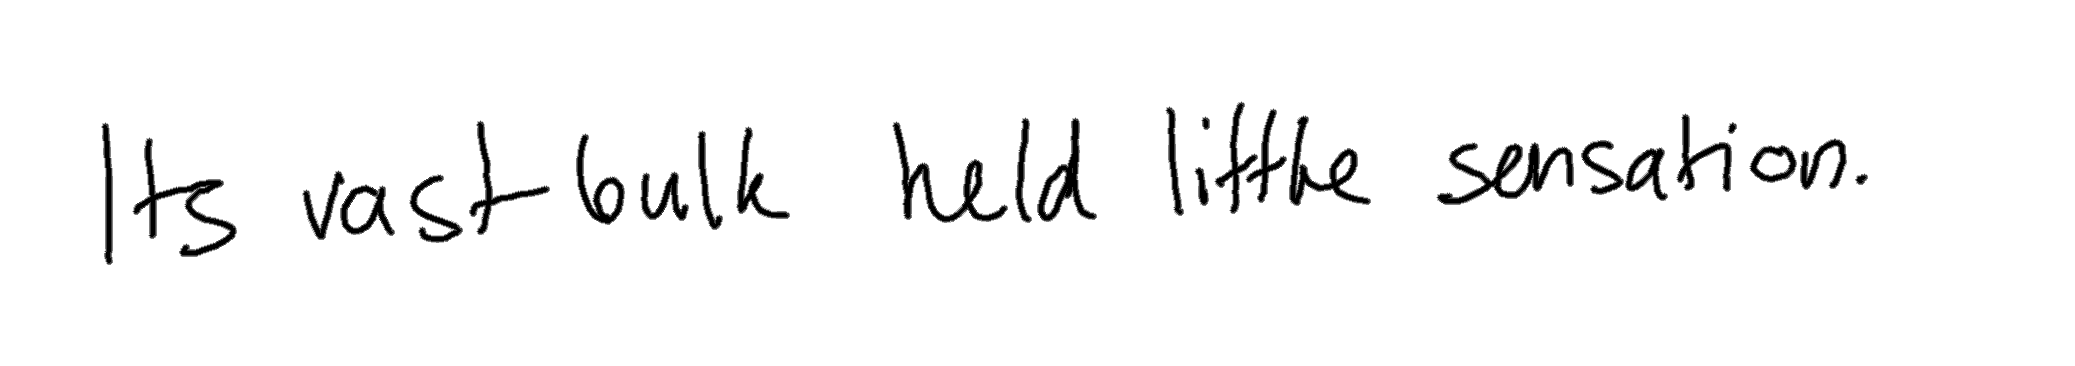 Its vast bulk held little sensation.